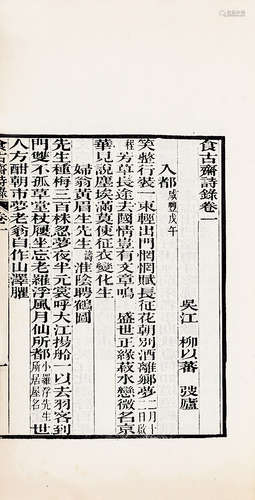 食古齋詩錄卷一
吳江 柳以蕃 弢廬
入都 咸豐戊午
笑整行裝一束輕出門惘惘賦長征花朝別酒離鄉夢 二月十二日啟
程 芳草長途去國情豈有文章鳴 盛世正緣菽水戀微名京
華見說塵埃滿莫使征衣變化生
婦翁黃眉生先生 淮陰聘鶴圖
先生種梅三百株忽夢夜半元裳呼大江揚船一以去羽客到
門雙不孤草堂杖履坐忘老羅浮風月仙所都 小羅浮先生所居屋名 世
人方酣朝市夢老翁自作山澤臞
食古齋詩錄 卷一 一